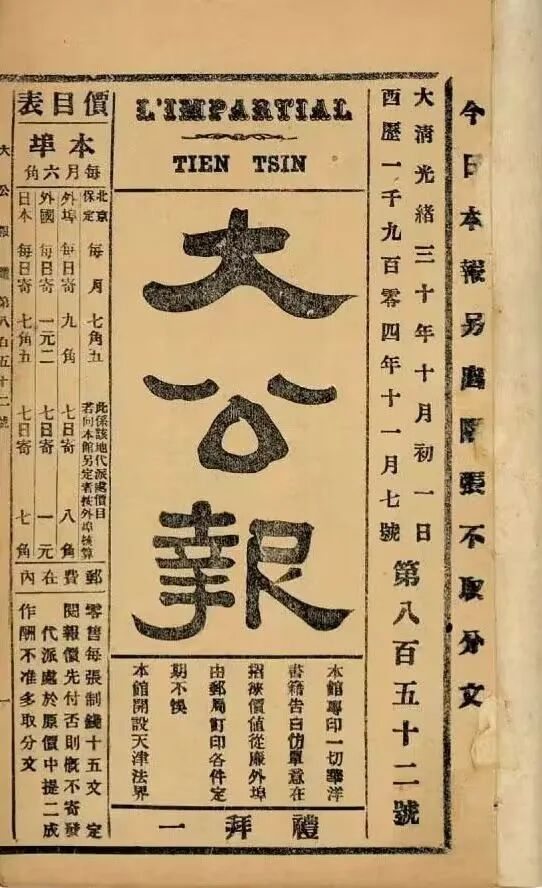 今日本報另張不取分文
大清光緒三十年十月初一日
西歷一千九百零四年十一月七號
第八百五十二號
L'IMPARTIAL
TIEN TSIN
大公報
本館專印一切華洋
書籍告白仿單意在
招徠價值從廉外埠
由郵局訂印各件定
期不悞
本館開設天津法界
禮拜一
價目表
本埠
每月六角
北京
保定
每月 七角五
此係該地代派處價目
若向本館另定者按外埠核算
外埠 每日寄 九角 七日寄 八角
外國 每日寄 一元二 七日寄 一元
日本 每日寄 七角五 七日寄 七角
郵費在內
零售每張制錢十五文 定
閱報價先付否則概不寄發
代派處於原價中提二成
作酬不准多取分文
大公報 第八百五十二號 一